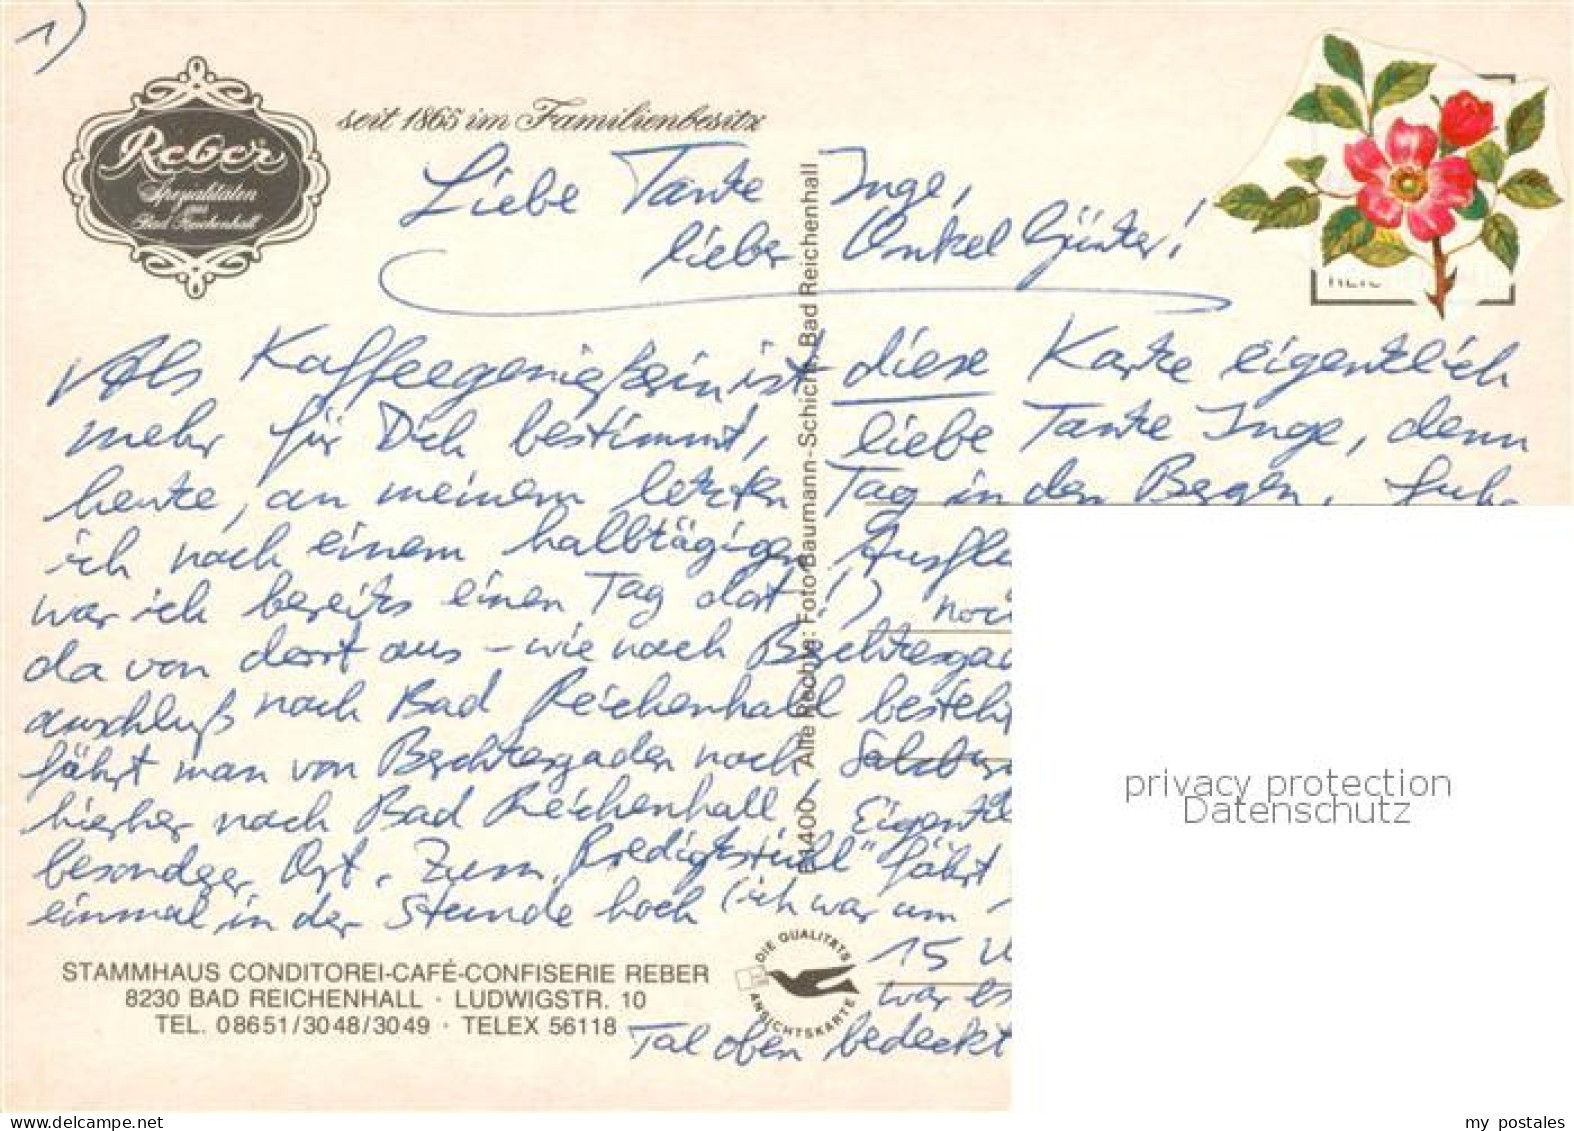 1)
Reber
Spezialitäten
aus
Bad Reichenhall
seit 1865 im Familienbesitz
Liebe Tante Inge,
lieber Onkel Günter!
Als Kaffeegenießerin ist diese Karte eigentlich
mehr für Dich bestimmt, liebe Tante Inge, denn
heute, an meinem letzten Tag in den Bergen, fuhr
ich nach einem halbtägigen Ausflu
war ich bereits einen Tag dort!) noc
da von dort aus - wie nach Berchtesgad
anschluß nach Bad Reichenhall besteh
fährt man von Berchtesgaden nach Salzbur
hierher nach Bad Reichenhall! Eigentl
besonderer Ort. Zum "Predigtstuhl" fährt
einmal in der Stunde hoch (ich war um
15 U
war es
Tal oben bedeckt
STAMMHAUS CONDITOREI-CAFÉ-CONFISERIE REBER
8230 BAD REICHENHALL · LUDWIGSTR. 10
TEL. 08651/3048/3049 · TELEX 56118
DIE QUALITÄTS
ANSICHTSKARTE
Alle Rechte: Foto Baumann-Schicht, Bad Reichenhall
privacy protection
Datenschutz
my postales